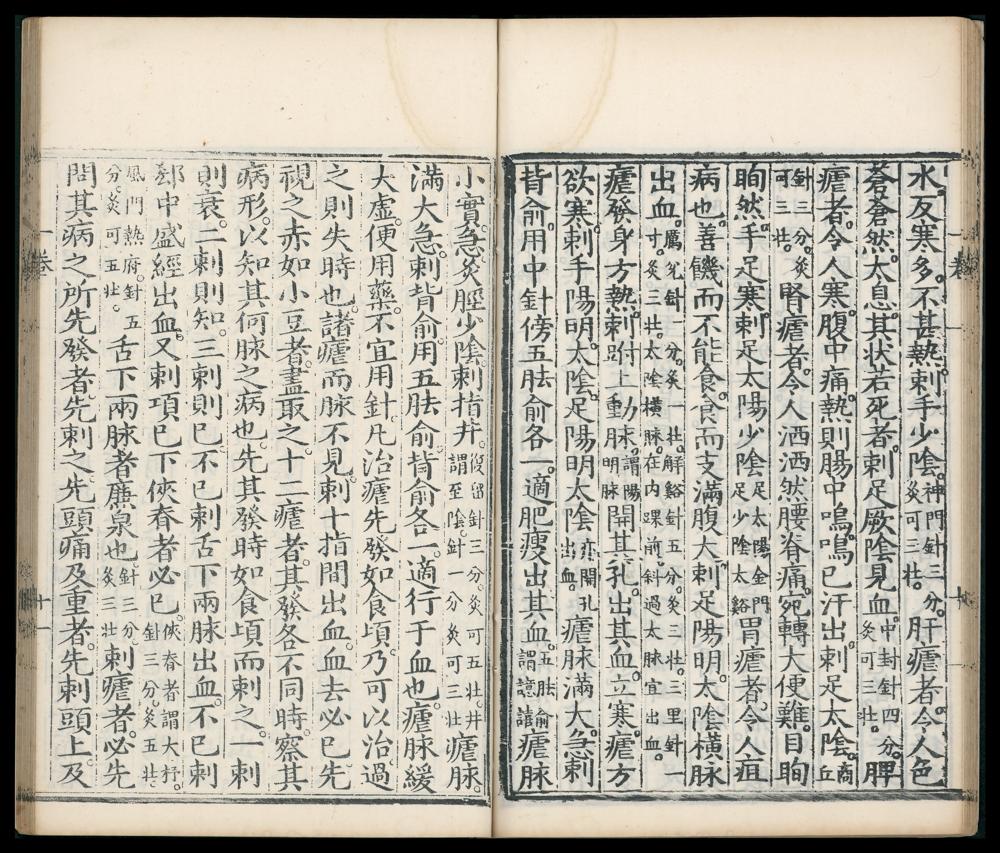 水反寒多。不甚熱。刺手少陰。神門針三分。灸可三壯。肝瘧者。令人色
蒼蒼然。太息。其状若死者。刺足厥陰見血。中封針四分。灸可三壯。脾
瘧者。令人寒。腹中痛。熱則腸中鳴。鳴已汗出。刺足太陰。商丘
針三分。灸可三壯。腎瘧者。令人洒洒然。腰脊痛。宛轉大便難。目眴
眴然。手足寒。刺足太陽少陰。足太陽金門足少陰太谿胃瘧者。令人疽
病也。善饑而不能食。食而支滿腹大。刺足陽明。太陰橫脉
出血。厲兌針一分。灸一壯。解谿針五分。灸三壯。三里針一寸。灸三壯。太陰橫脉。在内踝前。斜過太脉宜出血。
瘧發身方熱。刺跗上動脉。謂陽明脉開其孔。出其血。立寒。瘧方
欲寒。刺手陽明。太陰。足陽明太陰。亦開孔出血。瘧脉滿大。急刺
背俞。用中針傍五胠俞各一。適肥瘦出其血。五胠俞謂譩譆瘧脉
一卷
十
小實。急灸脛少陰。刺指井。復留針三分。灸可五壯。井謂至陰。針一分灸可三壯瘧脉。
滿大。急刺背俞。用五胠俞背俞各一。適行于血也。瘧脉緩
大虛。便用藥。不宜用針。凡治瘧先發如食頃。乃可以治。過
之則失時也。諸瘧而脉不見。刺十指間出血。血去必已。先
視之赤如小豆者。盡取之。十二瘧者。其發各不同時。察其
病形。以知其何脉之病也。先其發時如食頃而刺之。一刺
則衰。二刺則知。三刺則已。不已刺舌下兩脉出血。不已刺
郄中盛經出血。又刺項已下俠脊者必已。俠脊者謂大杼。針三分。灸五壯。
風門熱府。針五分。灸可五壯。舌下兩脉者。廉泉也。針三分。灸三壯刺瘧者。必先
問其病之所先發者。先刺之。先頭痛及重者。先刺頭上。及
一卷
十一